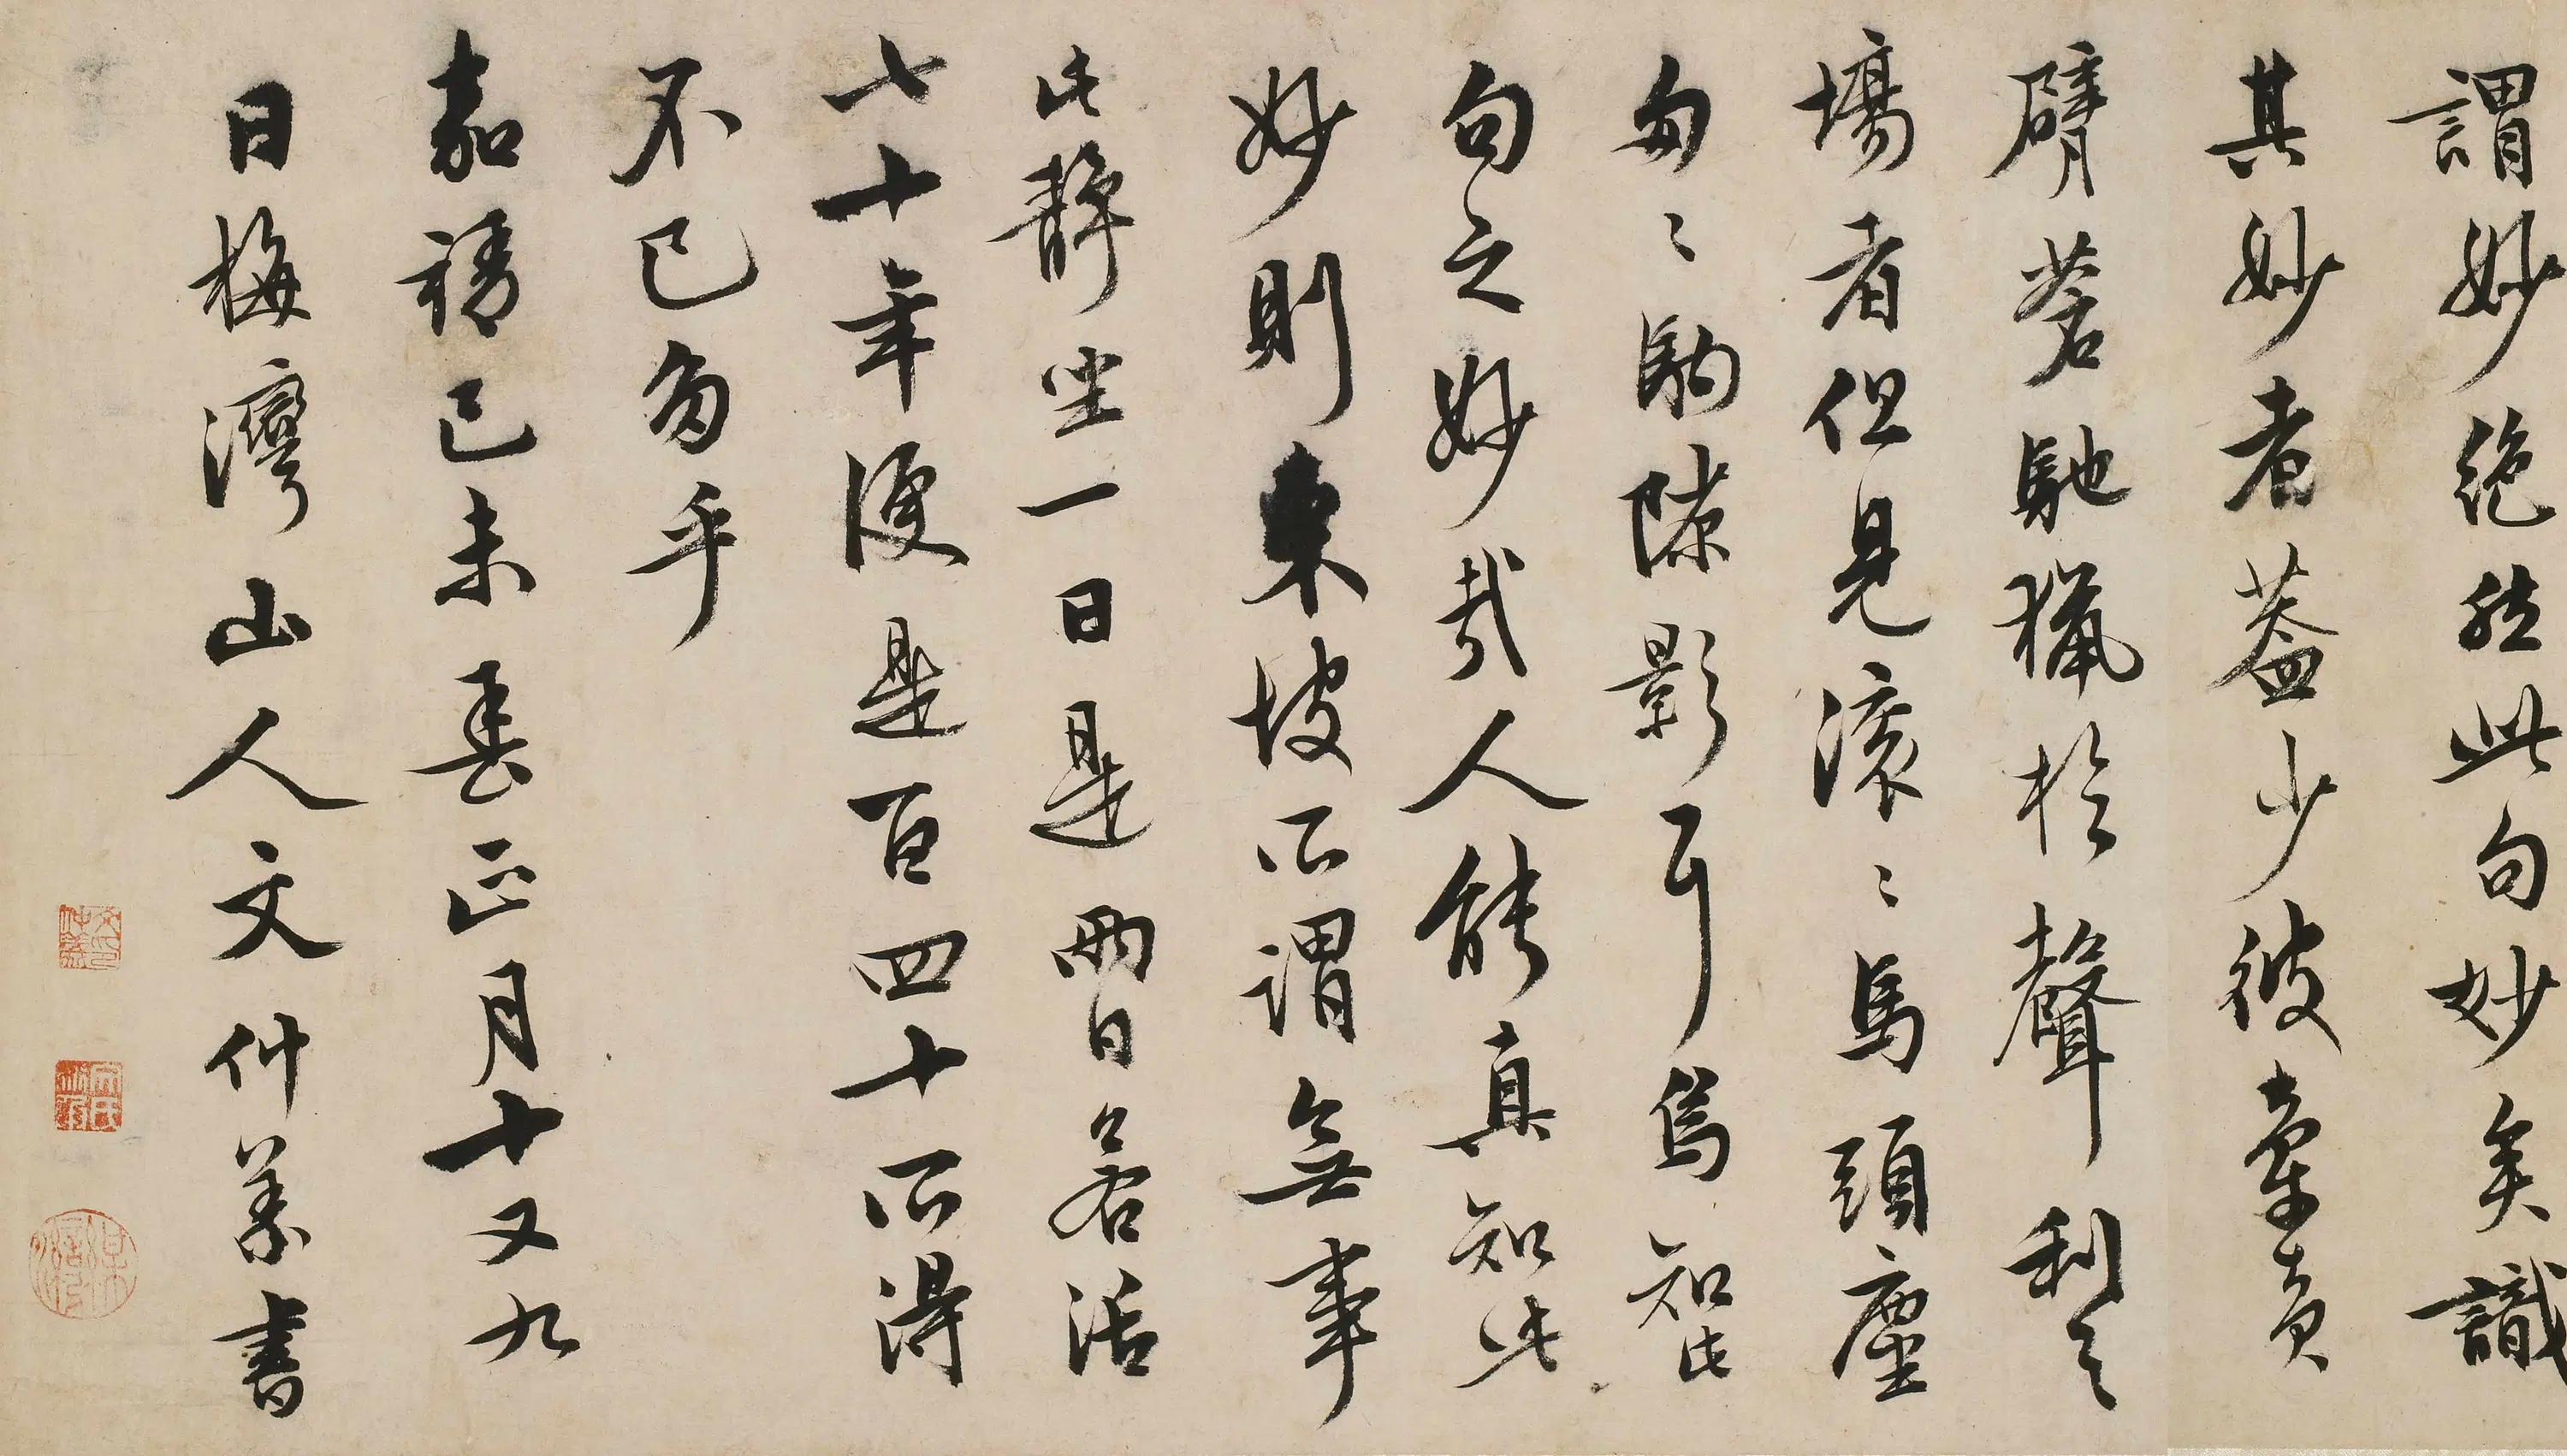 謂妙絕然此句妙矣識
其妙者蓋少彼牽黃
臂蒼馳獵於聲利之
場者但見滾〻馬頭塵
匆〻駒隙影耳烏知此
句之妙哉人能真知此
妙則東坡所謂無事
此靜坐一日是兩日若活
七十年便是百四十所得
不已多乎
嘉靖己未春正月十又九
日梅灣山人文仲義書